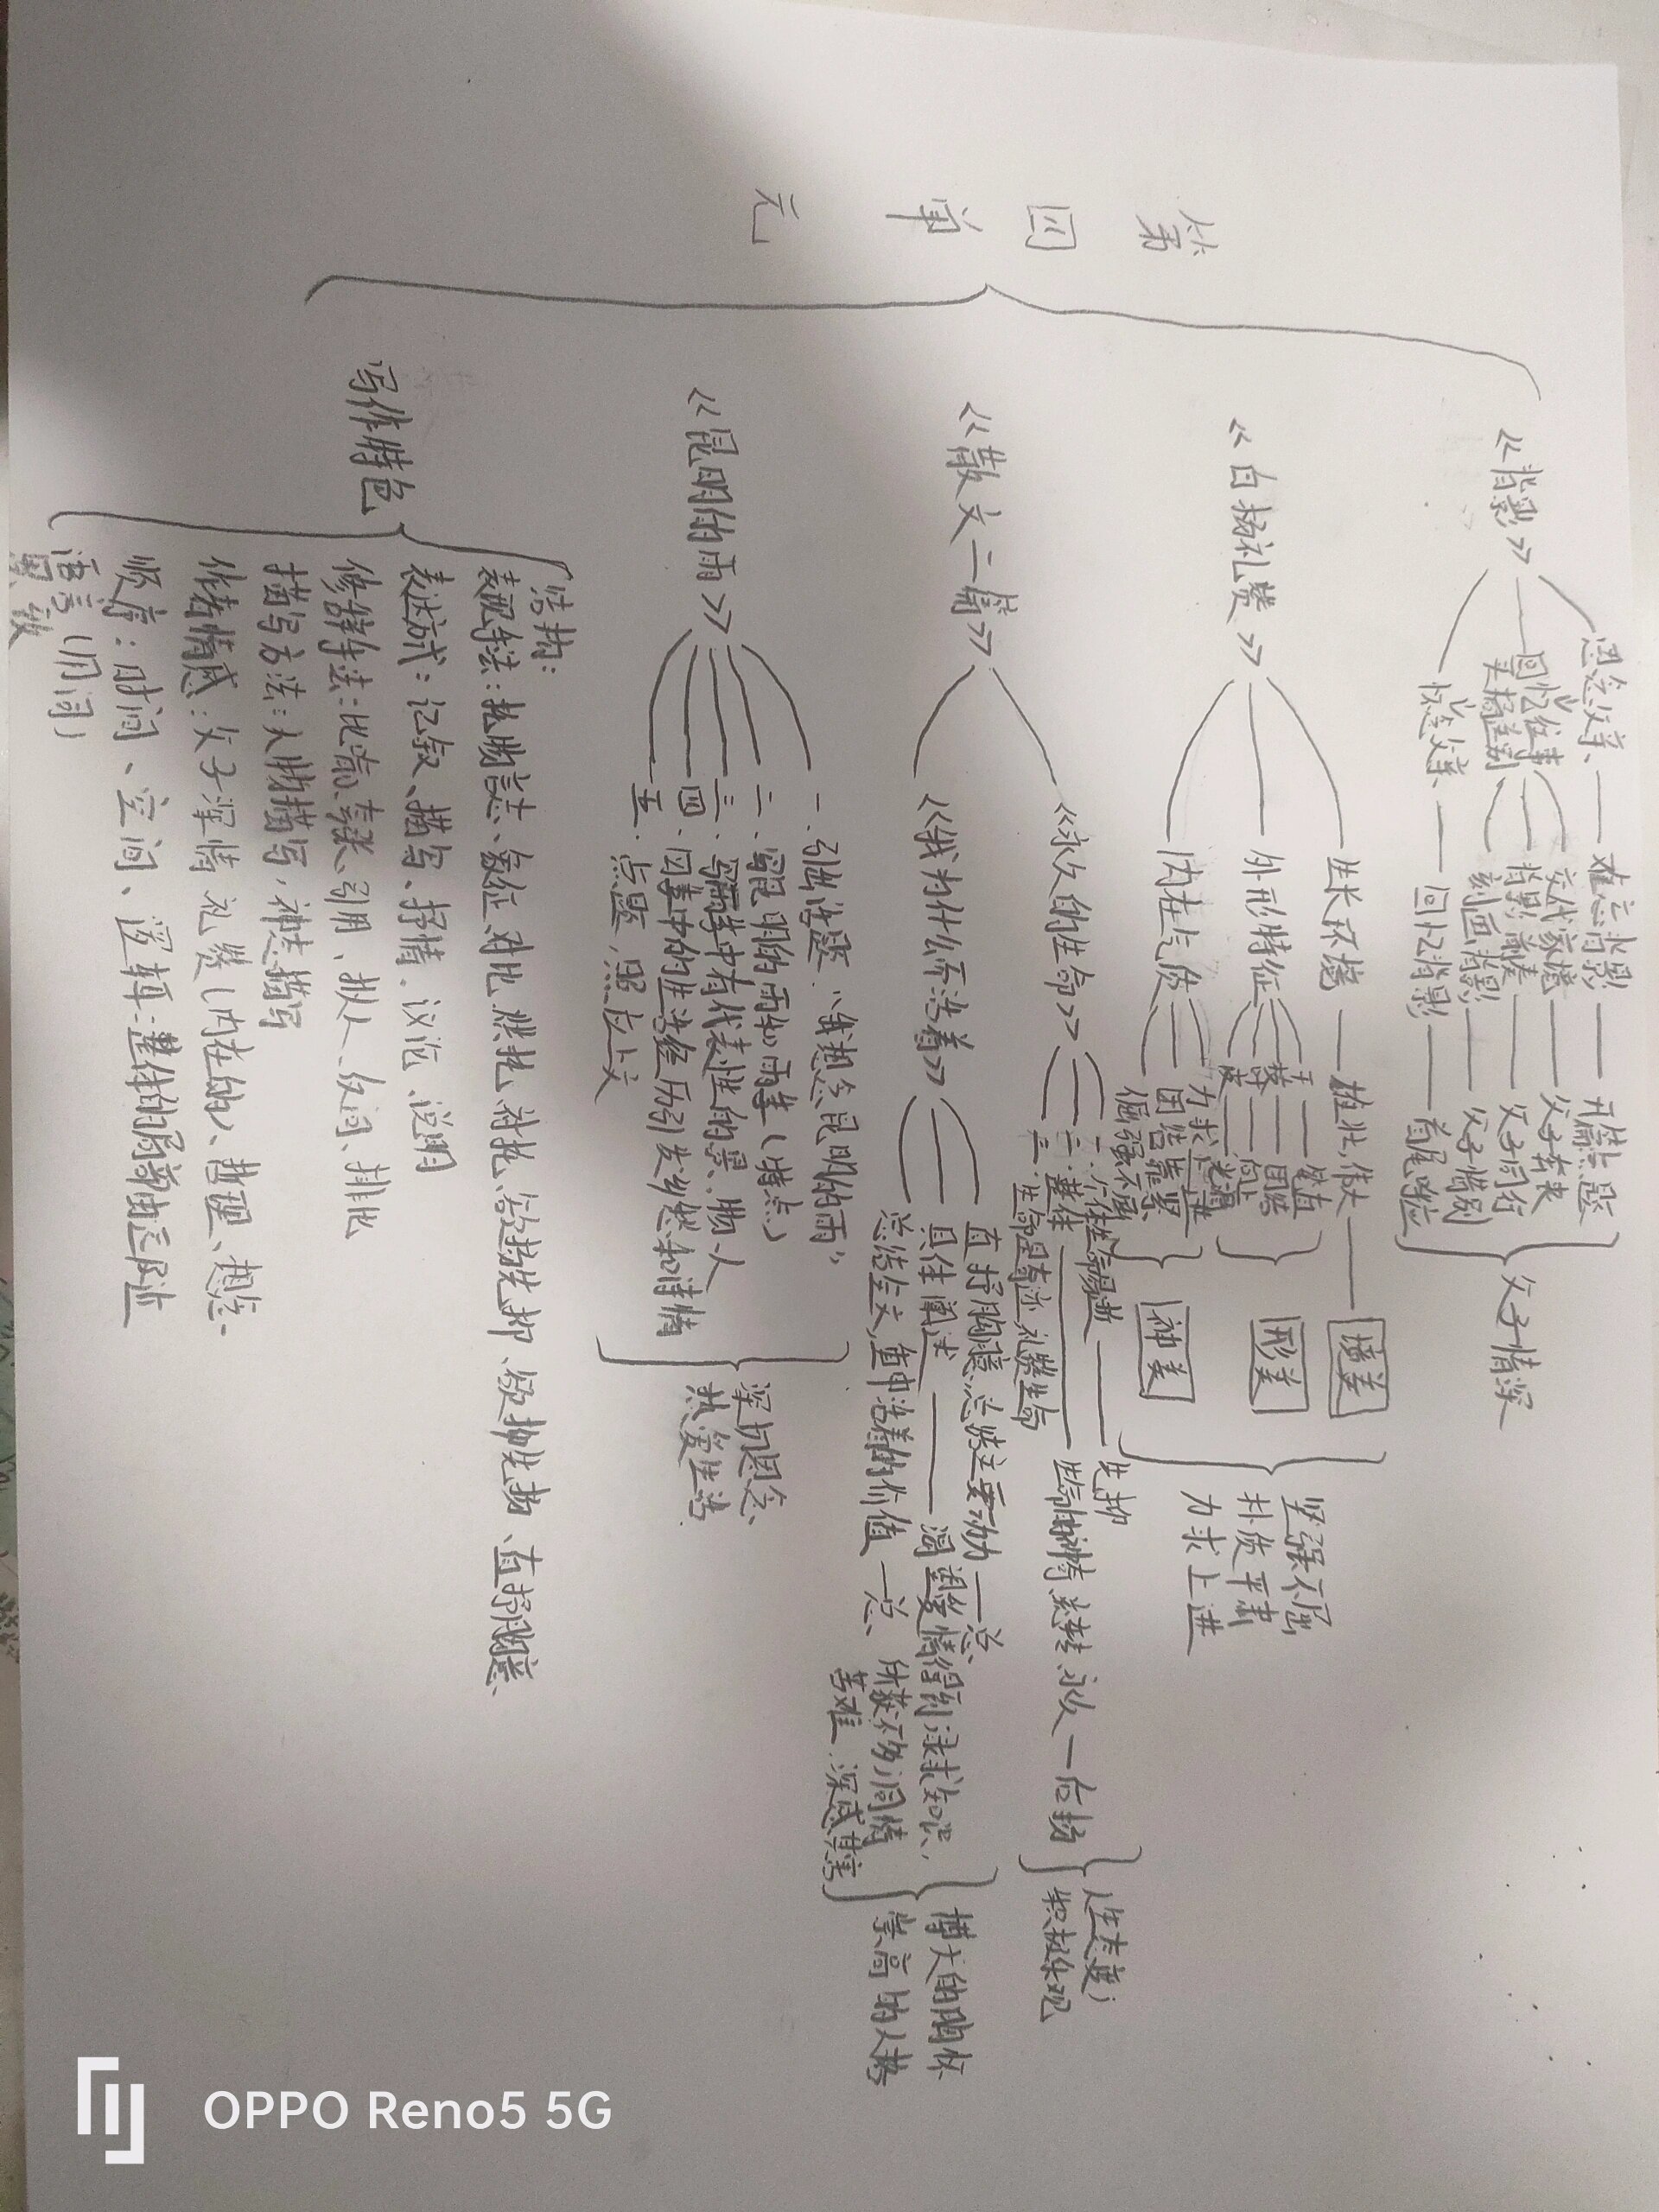 第四单元
《背影》
思念父亲、——难忘背影——开篇点题
回忆往事
交代家境——父子奔丧
背影前奏——父子同行
车站离别
刻画背影——父子惜别
怀念父亲、——回忆背影——首尾呼应
父子情深
《白杨礼赞》
生长环境——雄壮,伟大——境美
外形特征
干——笔直
枝——团结
叶——向上
皮——光滑
形美
内在气质
力求上进
团结靠紧
倔强不屈
神美
坚强不屈
朴质严肃
力求上进
《散文二篇》
《永久的生命》
一、个体生命易逝——先抑
二、整体——生命的神奇 流转 永久—后扬
三、生命是奇迹,礼赞生命
人生态度;
积极乐观
《我为什么而活着》
直抒胸臆,总结主要动力——总、
具体阐述——渴望爱情得到,寻求知识,
所获不多,同情
苦难,深感其害
总结全文,重申活着的价值—总、
博大的胸怀
崇高的人格
《昆明的雨》
一、引出话题:"我想念昆明的雨"
二、写昆明的雨和雨季(特点)
三、写雨季中有代表性的景、物、人
四、因其中的生活经历引发乡愁和情
五、点题,照应上文
深切思念、
热爱生活
写作特色
结构:
表现手法:托物言志、象征、对比、烘托、衬托、欲扬先抑、欲抑先扬、直抒胸臆、
表达方式:记叙、描写、抒情、议论、说明
修辞手法:比喻、夸张、引用、拟人、反问、排比
描写方法:人物描写,神态描写
作者情感:父子深情 礼赞(内在的)、哲理、想念、
顺序:时间、空间、逻辑:整体的局部由远及近
语言(用词)